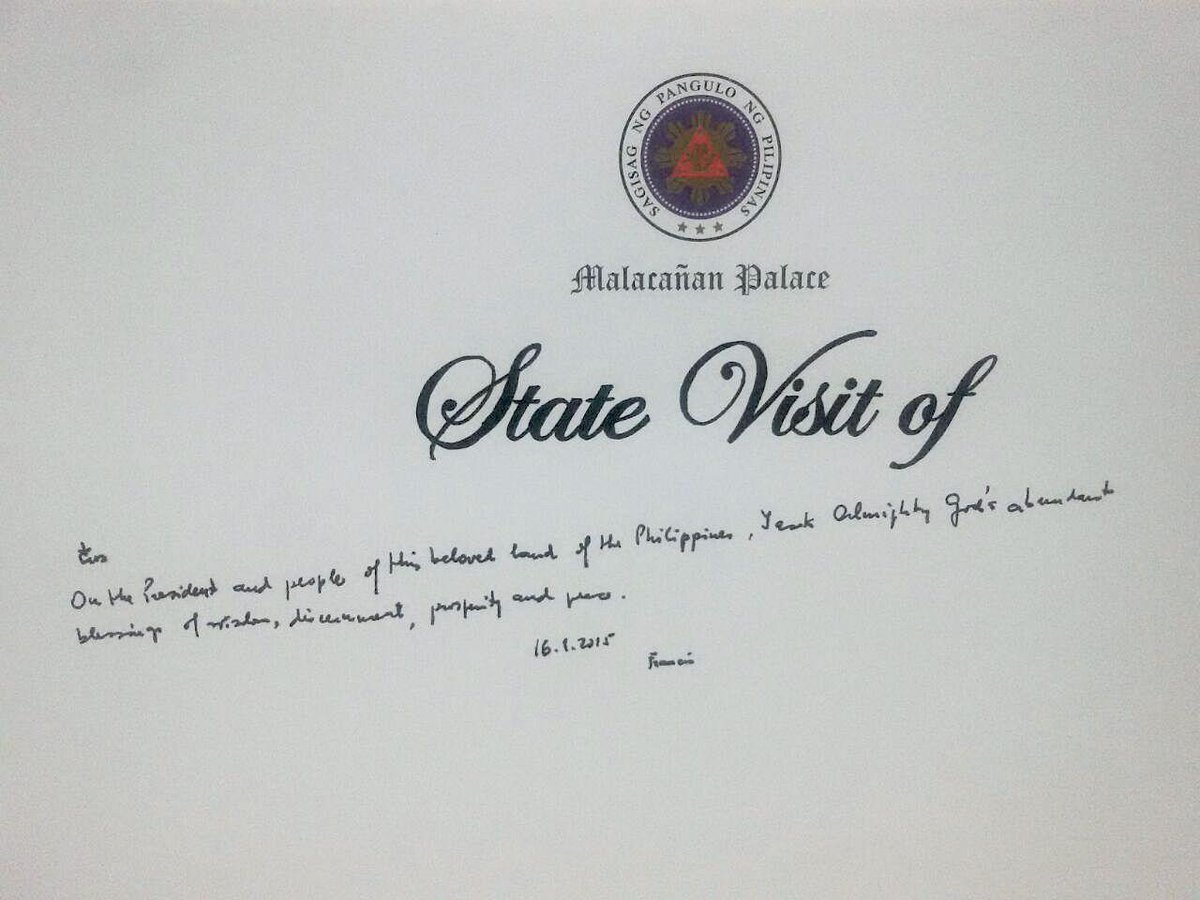 SAGISAG NG PANGULO NG PILIPINAS
Malacañan Palace
State Visit of
On the President and people of this beloved land of the Philippines, I ask Almighty God's abundant
blessings of wisdom, discernment, prosperity and peace.
16.1.2015
Francis